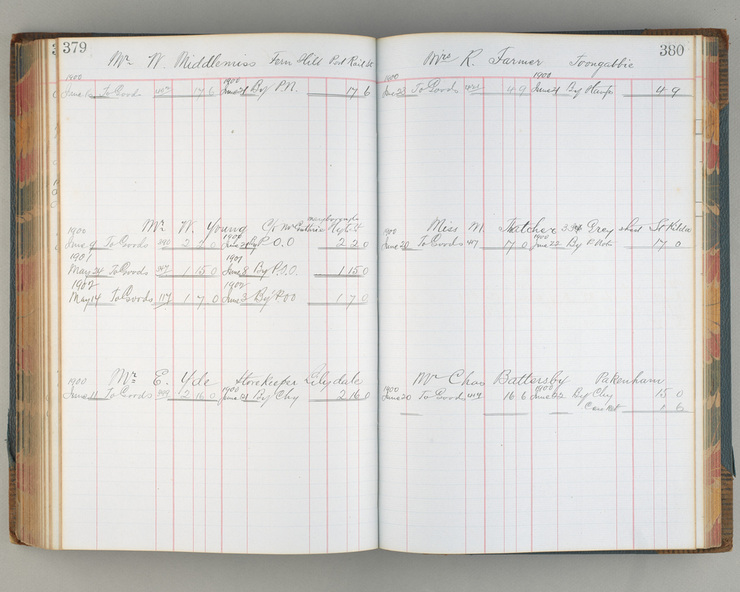 379
Mr W. Middlemiss Fern Hill Post
1900 1900
June To Goods 17 6 June 21 By P.N. 17 6
Mr W. Young C/o
1900 1900
June 9 To Goods 390 2 2 0 June 21 By P.O.O 2 2 0
1901 1901
May 24 To Goods 1 15 0 June 8 By P.O.O. 1 15 0
1902 1902
May 14 To Goods 117 1 7 0 June 3 By P.O.O 1 7 0
Mr E. Yde Storekeeper Lilydale
1900 1900
June 11 To Goods 399 2 16 0 June 21 By Chq 2 16 0
380
Mrs R. Farmer Toongabbie
1900 1900
June 23 To Goods 4 9 June 21 By Stamps 4 9
Miss M. Thatcher 334 Grey Street St Kilda
1900 1900
June 20 To Goods 417 17 0 June 22 By P Note 17 0
Mr Chas Battersby Pakenham
1900 1900
June 20 To Goods 417 16 6 June 22 By Chq 15 0
1 6